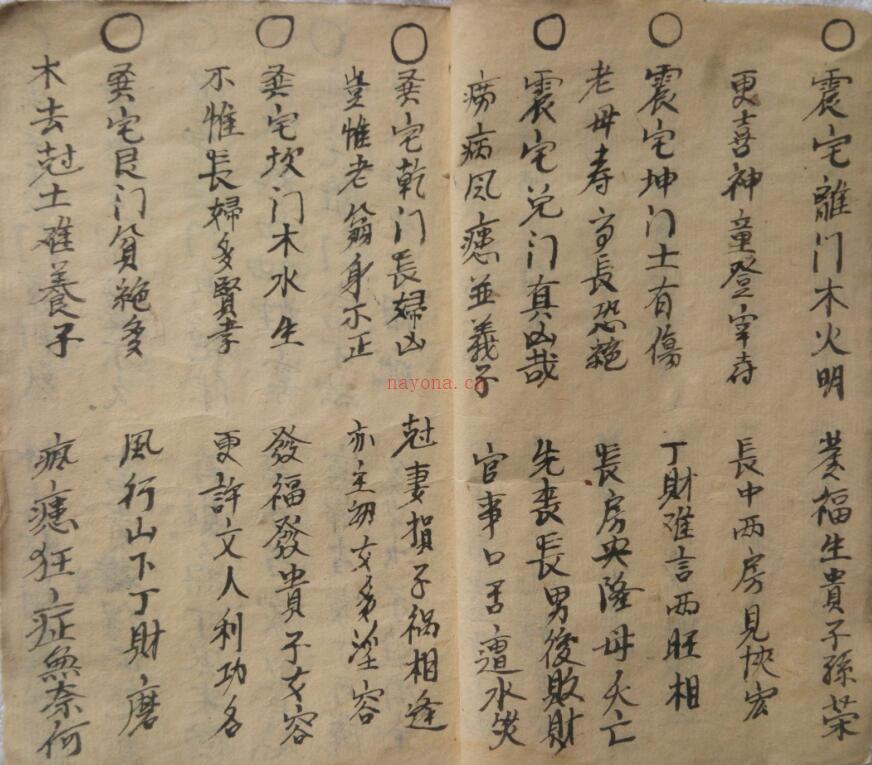 ○震宅離门木火明 發福生貴子孫荣
更喜神童登宰府 長中两房見恢宏
○震宅坤门土有傷 丁財难言两旺相
老母寿高長恐绝 長房央隆母夭亡
○震宅兑门真凶哉 先丧長男後敗財
痨病風癔並義子 官事口舌遭水災
○巽宅乾门長婦凶 尅妻損子祸相逢
豈惟老翁身不正 亦主幼女多淫容
○巽宅坎门木水生 發福發貴子女容
不惟長婦多賢孝 更許文人利功名
○巽宅艮门貧绝多 風行山下丁財磨
木去尅土难養子 疯癔狂症無奈何
nayona.cn